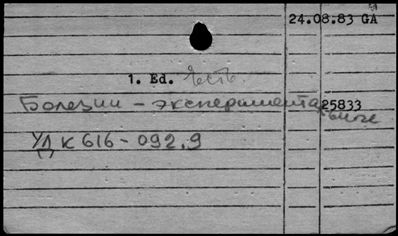 24.08.83 GA
1. Ed. есть.
Болезни - экспериментальные 25833
УДК 616-092.9